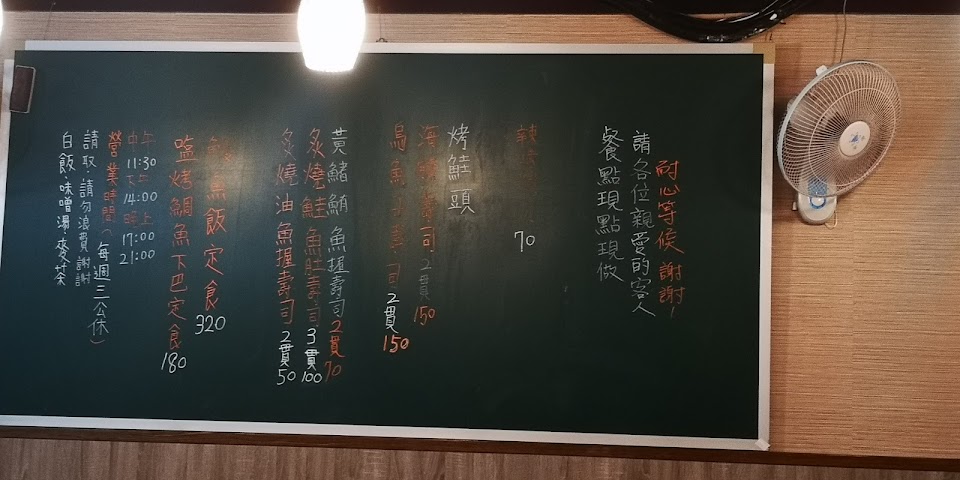 耐心等候 謝謝!
請各位親愛的客人
餐點現點現做
辣 70
烤鮭頭
海 壽司 2貫 150
烏魚 壽司 2貫 150
黃鰭鮪魚握壽司 2貫 70
炙燒鮭魚肚壽司 3貫 100
炙燒油魚握壽司 2貫 50
魚飯定食 320
塩烤鯛魚下巴定食 180
中午 11:30
下午 14:00
晚上 17:00
21:00
營業時間(每週三公休)
請取.請勿浪費 謝謝
白飯.味噌湯.麥茶